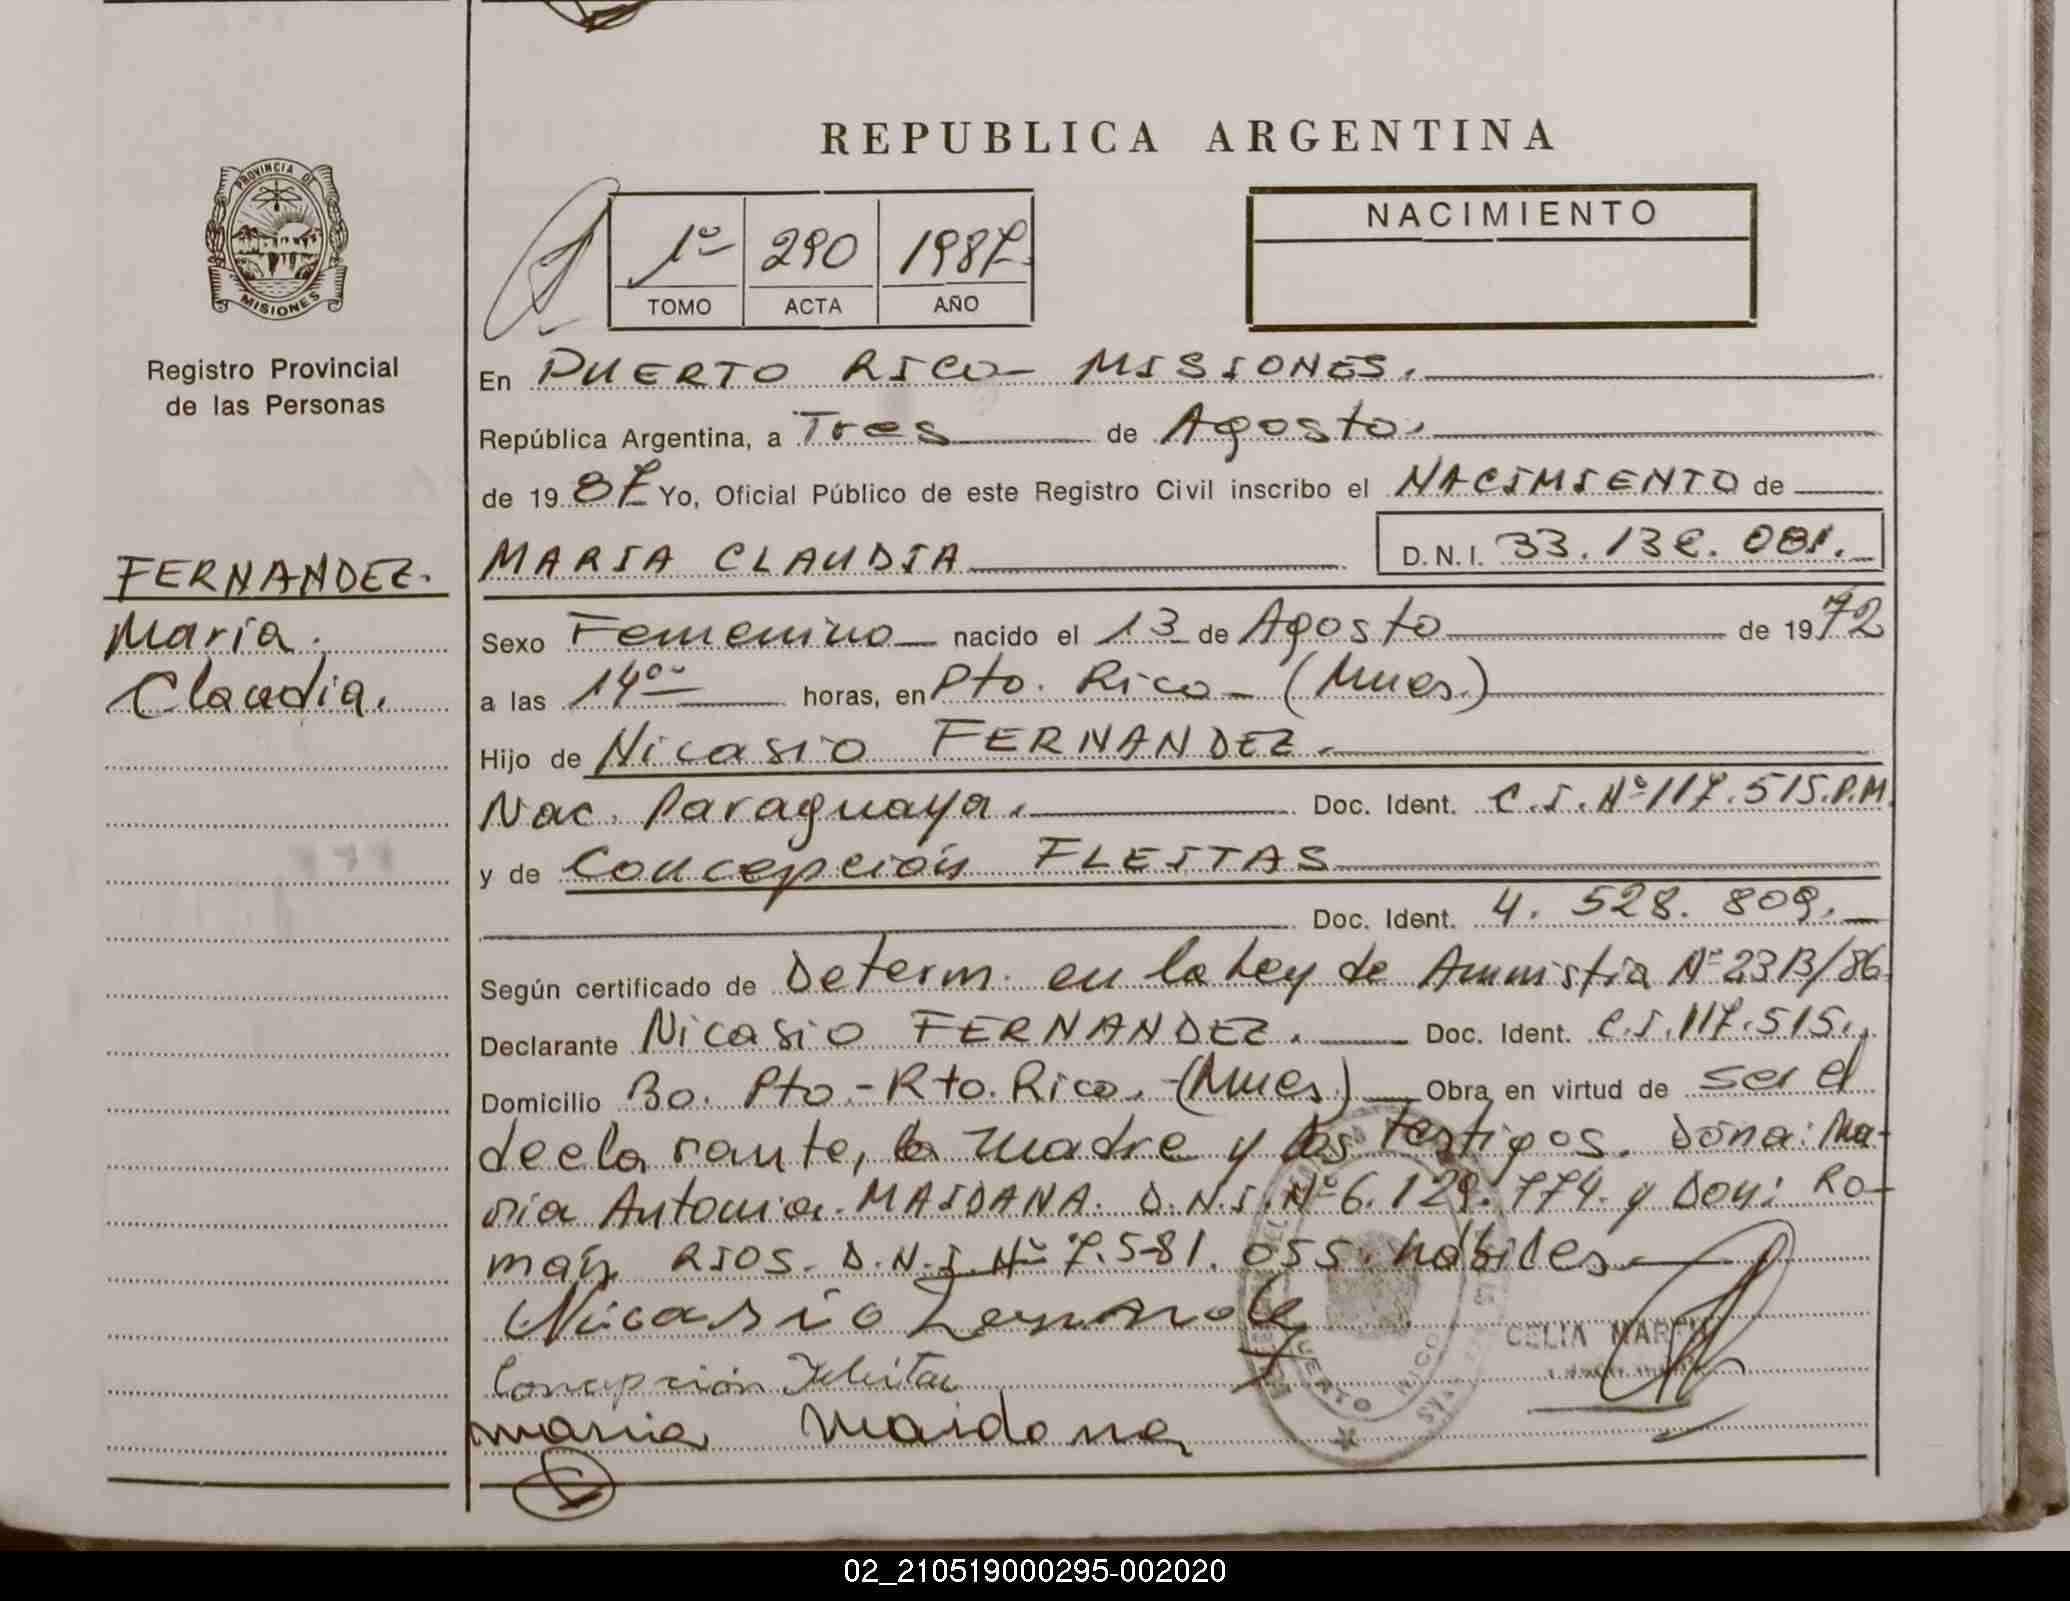 REPUBLICA ARGENTINA
PROVINCIA DE
MISIONES
Registro Provincial
de las Personas
1º 290 1987
TOMO ACTA AÑO
NACIMIENTO
En PUERTO RICO - MISIONES.
República Argentina, a Tres de Agosto.
de 19 87 Yo, Oficial Público de este Registro Civil inscribo el NACIMIENTO de
MARIA CLAUDIA D.N.I. 33.132.081.
FERNANDEZ.
Maria.
Claudia.
Sexo Femenino nacido el 13 de Agosto de 1972
a las 14º horas, en Pto. Rico - (Mnes.)
Hijo de Nicasio FERNANDEZ.
Nac. Paraguaya. Doc. Ident. C.I. Nº 117.515.P.M.
y de Concepción FLEITAS
Doc. Ident. 4. 528. 809.
Según certificado de Determ. en la Ley de Amnistia Nº 23 13/86
Declarante Nicasio FERNANDEZ. Doc. Ident. C.I. 117.515.
Domicilio Bo. Pto - Rto. Rico. - (Mnes.) Obra en virtud de ser el
declarante, la madre y los testigos. Doña: Ma-
ria Antonia MAIDANA. D.N.I. Nº 6.129.774. y Don: Ro-
mán RIOS. D.N.I. Nº 7.581.055. hábiles
Nicasio Fernandez
Concepción Fleitas
CELIA
maria maidana
PUERTO RICO
02_210519000295-002020